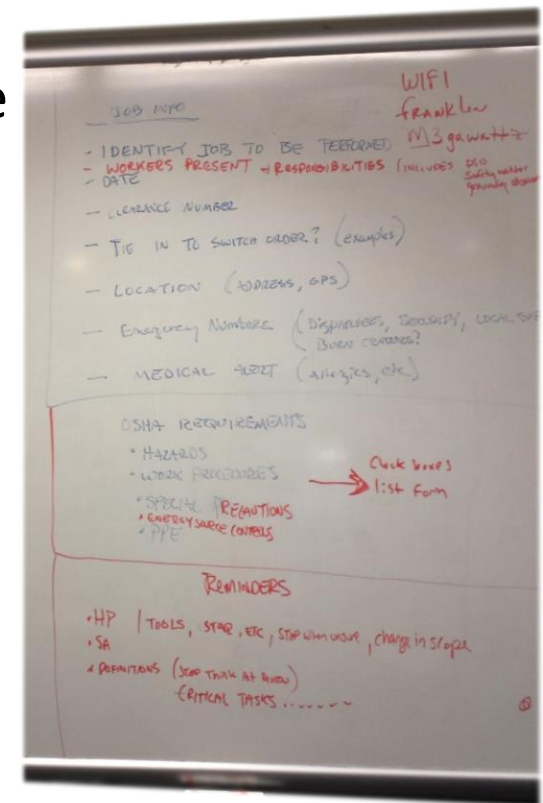 e
JOB INFO
WIFI
franklin
M3gawattz
- IDENTIFY JOB TO BE PERFORMED
- WORKERS PRESENT + RESPONSIBILITIES (INCLUDES DSO
Safety watcher
grounding observer
- DATE
- CLEARANCE NUMBER
- TIE IN TO SWITCH ORDER? (examples)
- LOCATION (ADDRESS, GPS)
- Emergency Numbers (Dispatches, SECURITY, LOCAL
BURN CENTERS?
- MEDICAL ALERT (Allergies, etc)
OSHA REQUIREMENTS
• HAZARDS
• WORK PROCEDURES
• SPECIAL PRECAUTIONS
• ENERGY SOURCE CONTROLS
• PPE
Check boxes
list form
REMINDERS
• HP / TOOLS, STAR, ETC, STOP when unsure, change in scope
• SA
• DEFINITIONS (STOP THINK Act REVIEW)
CRITICAL TASKS.......